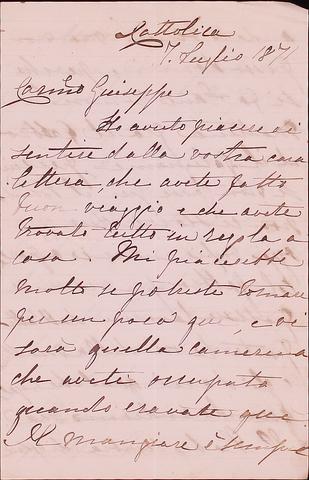 Cattolica
7. Luglio 1871
Carmo Giuseppe
Ho avuto piacere di
sentire dalla vostra cara
lettera, che avete fatto
buon viaggio e che avete
trovato tutto in regola a
casa. Mi piacerebbe
molto se poteste tornare
per un poco qui, e vi
sarà quella camerina
che avete occupata
quando eravate qui.
Il mangiare è sempre